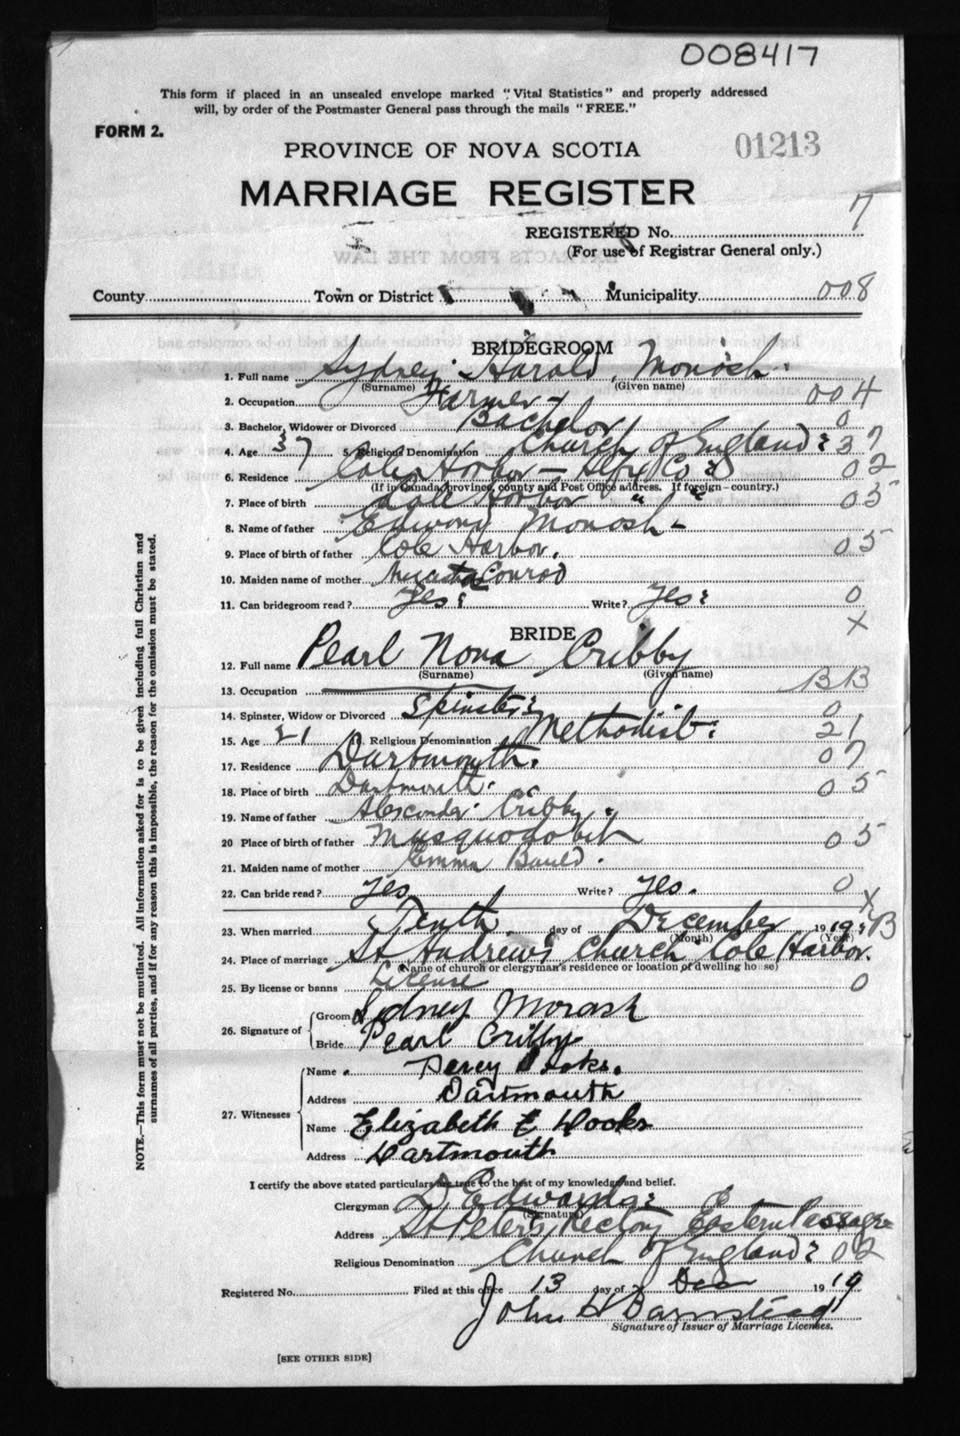 008417
This form if placed in an unsealed envelope marked "Vital Statistics" and properly addressed
will, by order of the Postmaster General pass through the mails "FREE."
FORM 2.
PROVINCE OF NOVA SCOTIA
01213
MARRIAGE REGISTER
REGISTERED No. 7
(For use of Registrar General only.)
County Town or District Municipality 008
BRIDEGROOM
1. Full name Sydney Harold Morash
(Surname) (Given name)
2. Occupation Farmer 004
3. Bachelor, Widower or Divorced Bachelor 0
4. Age 37 5. Religious Denomination Church of England 37
6. Residence Cole Harbor - Hfx Co 02
(If in Canada, province, county and Post Office address. If foreign—country.)
7. Place of birth Cole Harbor " " 05
8. Name of father Edward Morash
9. Place of birth of father Cole Harbor. 05
10. Maiden name of mother Conrod
11. Can bridegroom read? Yes Write? Yes 0
X
BRIDE
12. Full name Pearl Nora Cribby
(Surname) (Given name)
13. Occupation BB
14. Spinster, Widow or Divorced Spinster 0
15. Age 21 16. Religious Denomination Methodist 21
17. Residence Dartmouth. 07
18. Place of birth Dartmouth. 05
19. Name of father Alexander Cribby
20 Place of birth of father Musquodobit 05
21. Maiden name of mother Emma Bauld.
22. Can bride read? Yes Write? Yes. 0
X
23. When married Tenth day of December 1919 B
(Month) (Year)
24. Place of marriage St Andrew's Church Cole Harbor.
(Name of church or clergyman's residence or location of dwelling house)
25. By license or banns License 0
26. Signature of Groom Sydney Morash
Bride Pearl Cribby
27. Witnesses
Name Percy Hooks.
Address Dartmouth
Name Elizabeth E Hooks
Address Dartmouth
I certify the above stated particulars are true to the best of my knowledge and belief.
Clergyman D. Edwards
(Signature)
Address St Peter's Rectory Eastern Passage
Religious Denomination Church of England 02
Registered No. Filed at this office 13 day of Dec 1919
John H Barnstead
Signature of Issuer of Marriage Licenses.
[SEE OTHER SIDE]
NOTE.—This form must not be mutilated. All information asked for is to be given including full Christian and
surnames of all parties, and if for any reason this is impossible, the reason for the omission must be stated.